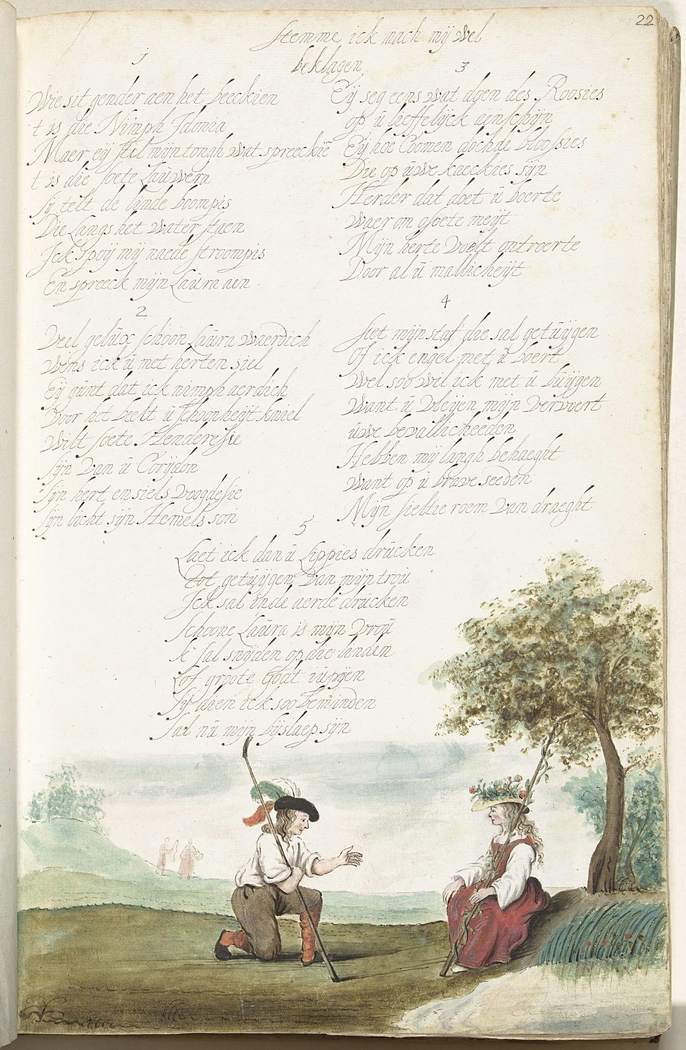 22
Stemme ick mach mij wel
beklagen
1
Wie sit gender aen het beeckien
t is die Nimph Jalomin
Maer eij stil mijn tongh wat spreeckie
t is die soete Lauwera
Sij telt de lande boompis
Die Langs het water staen
Ick spoij mij naede stroompis
En spreeck mijn Laura aen
2
Veel gelux schoon Laura waerdich
Wens ick u met herten siel
Eij gunt dat ick nimph aerdich
Voor het beelt u schoonheijt kniel
Wilt soete Herderesse
Sijn van u Corijdon
Sijn hert en siels voogdesse
Sijn licht sijn Hemels son
3
Eij seg eens wat doen des Roosies
op u lieffelijck aenschijn
Eij hoe Comen dochde bloosies
Die op uwe kaeckies sijn
Herder dat doet u boerte
Waerom soete meijt
Mijn herte Voelt ontroerte
Door al u mallicheijt
4
Siet mijn staf die sal getuijgen
Of ick engel met u boert
Wel soo wil ick met u buijgen
Want u Vleijen mijn Vervoert
uwe bevallicheeden
Hebben mij langh behaeght
Want op u brave seeden
Mijn sieltie roem Van draeght
5
Laet ick dan u Lippies drucken
Tot getuijgen Van mijn trou
Ick sal inde aerde drucken
Schoone Laura is mijn Vrou
K sal snijden op die linden
Lof groote Godt
Sij daen ick soo beminden
Sal nu mijn bijslaep sijn